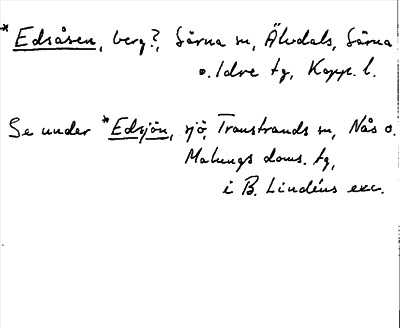 * Edsåsen, berg?, Särna sn, Älvdals, Särna
o. Idre tg, Kopp. l.
Se under * Edsjön, sjö, Transtrands sn, Nås o.
Malungs doms. tg,
i B. Lindéns exc.